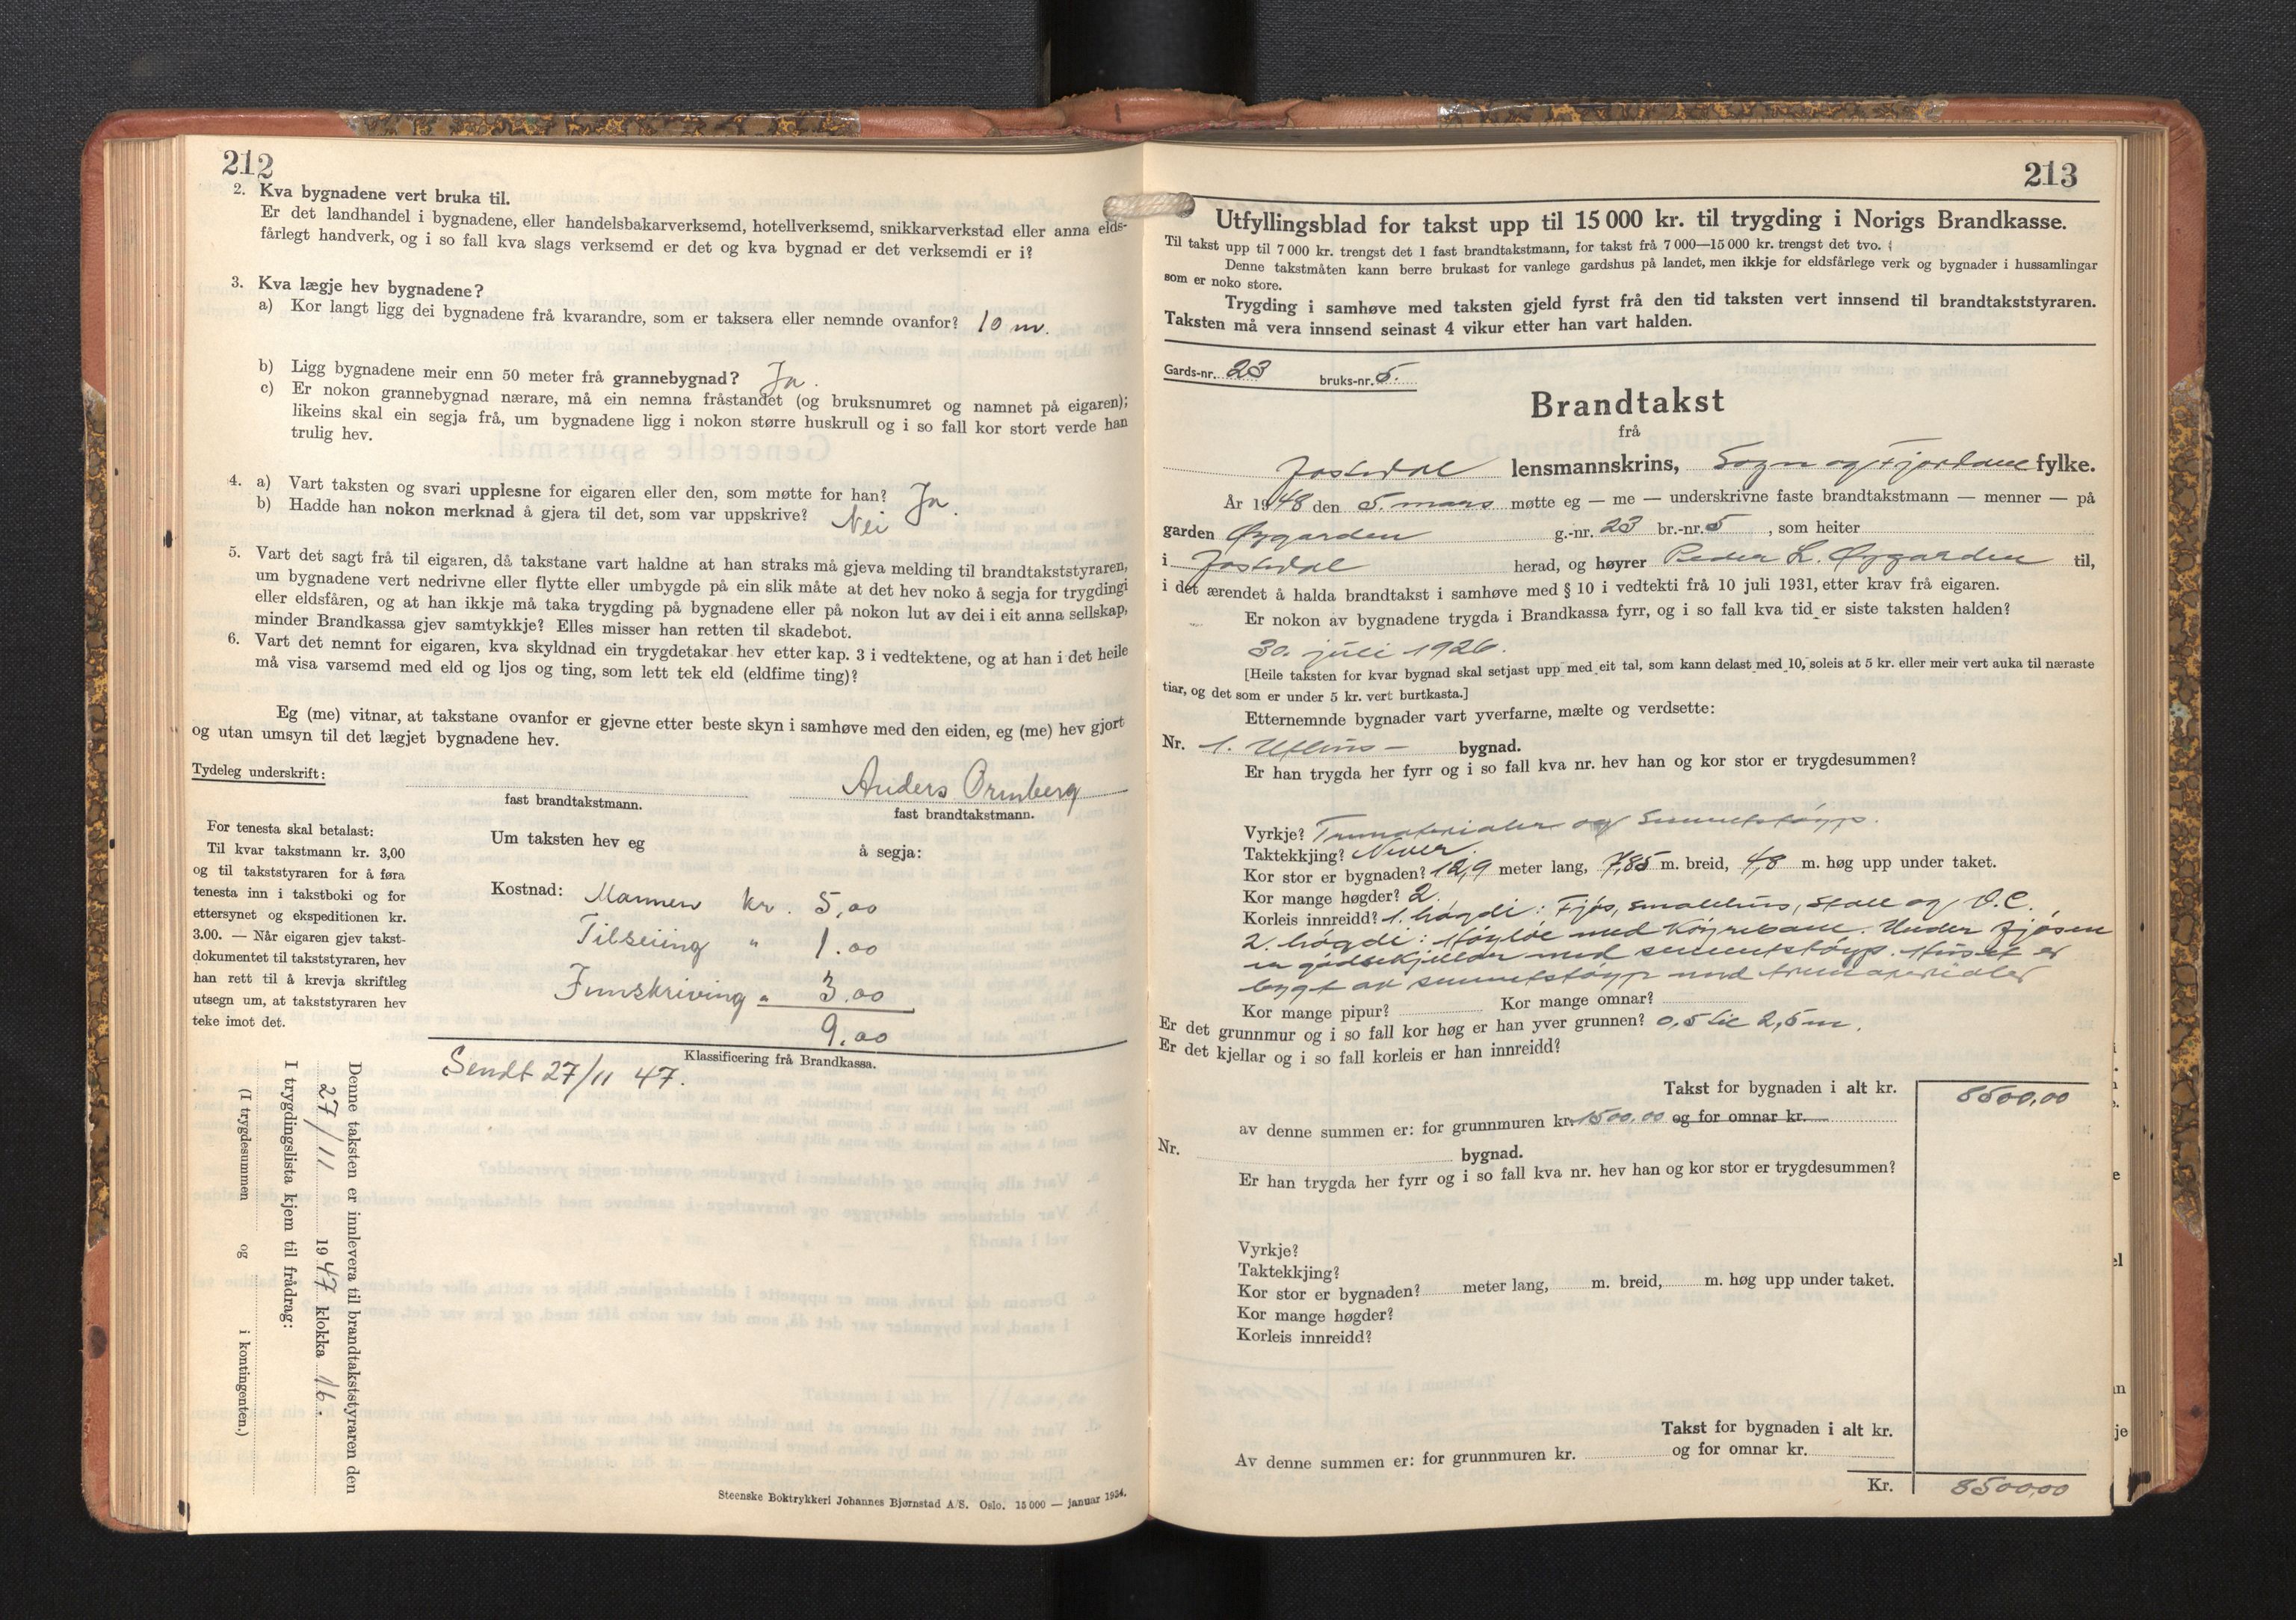 212
2. Kva bygnadene vert bruka til.
Er det landhandel i bygnadene, eller handelsbakarverksemd, hotellverksemd, snikkarverkstad eller anna elds-
fårlegt handverk, og i so fall kva slags verksemd er det og kva bygnad er det verksemdi er i?
3. Kva lægje hev bygnadene?
a) Kor langt ligg dei bygnadene frå kvarandre, som er taksera eller nemnde ovanfor? 10 m.
b) Ligg bygnadene meir enn 50 meter frå grannebygnad? Ja.
c) Er nokon grannebygnad nærare, må ein nemna fråstandet (og bruksnumret og namnet på eigaren);
likeins skal ein segja frå, um bygnadene ligg i nokon større huskrull og i so fall kor stort verde han
trulig hev.
4. a) Vart taksten og svari upplesne for eigaren eller den, som møtte for han? Ja.
b) Hadde han nokon merknad å gjera til det, som var uppskrive? Nei
5. Vart det sagt frå til eigaren, då takstane vart haldne at han straks må gjeva melding til brandtakststyraren,
um bygnadene vert nedrivne eller flytte eller umbygde på ein slik måte at det hev noko å segja for trygdingi
eller eldsfåren, og at han ikkje må taka trygding på bygnadene eller på nokon lut av dei i eit anna sellskap,
minder Brandkassa gjev samtykkje? Elles misser han retten til skadebot.
6. Vart det nemnt for eigaren, kva skyldnad ein trygdetakar hev etter kap. 3 i vedtektene, og at han i det heile
må visa varsemd med eld og ljos og ting, som lett tek eld (eldfime ting)?
Eg (me) vitnar, at takstane ovanfor er gjevne etter beste skyn i samhøve med den eiden, eg (me) hev gjort
og utan umsyn til det lægjet bygnadene hev.
Tydeleg underskrift:
Anders Ormberg
fast brandtakstmann.
fast brandtakstmann.
For tenesta skal betalast:
Til kvar takstmann kr. 3,00
og til takststyraren for å føra
tenesta inn i takstboki og for
ettersynet og ekspeditionen kr.
3.00. — Når eigaren gjev takst-
dokumentet til takststyraren, hev
han rett til å krevja skriftleg
utsegn um, at takststyraren hev
teke imot det.
Um taksten hev eg å segja:
Kostnad: Mannen kr. 5,00
Tilseiing " 1.00
Innskriving " 3.00
9,00
Klassificering frå Brandkassa.
Sendt 27/11 47.
Denne taksten er innlevera til brandtakststyraren den
27/11 1947 klokka 16.
I trygdingslista kjem til frådrag:
(I trygdesummen og i kontingenten.)
Steenske Boktrykkeri Johannes Bjørnstad A/S. Oslo. 15 000 — januar 1934.
213
Utfyllingsblad for takst upp til 15 000 kr. til trygding i Norigs Brandkasse.
Til takst upp til 7 000 kr. trengst det 1 fast brandtakstmann, for takst frå 7 000—15 000 kr. trengst det tvo.
Denne takstmåten kann berre brukast for vanlege gardshus på landet, men ikkje for eldsfårlege verk og bygnader i hussamlingar
som er noko store.
Trygding i samhøve med taksten gjeld fyrst frå den tid taksten vert innsend til brandtakststyraren.
Taksten må vera innsend seinast 4 vikur etter han vart halden.
Gards-nr. 23 bruks-nr. 5.
Brandtakst
frå
Jostedal lensmannskrins, Sogn og Fjordane fylke.
År 1948 den 5. mars møtte eg — me — underskrivne faste brandtakstmann — menner — på
garden Øygarden g.-nr. 23 br.-nr. 5, som heiter
i Jostedal herad, og høyrer Peder L. Øygarden til,
i det ærendet å halda brandtakst i samhøve med § 10 i vedtekti frå 10 juli 1931, etter krav frå eigaren.
Er nokon av bygnadene trygda i Brandkassa fyrr, og i so fall kva tid er siste taksten halden?
30. juli 1926.
[Heile taksten for kvar bygnad skal setjast upp med eit tal, som kann delast med 10, soleis at 5 kr. eller meir vert auka til næraste
tiar, og det som er under 5 kr. vert burtkasta.]
Etternemnde bygnader vart yverfarne, mælte og verdsette:
Nr. 1. Uthus- bygnad.
Er han trygda her fyrr og i so fall kva nr. hev han og kor stor er trygdesummen?
Vyrkje? Trematerialer og Sementstøyp.
Taktekkjing? Never.
Kor stor er bygnaden? 12,9 meter lang, 7,85 m. breid, 4,8 m. høg upp under taket.
Kor mange høgder? 2.
Korleis innreidd? 1. høgdi: Fjøs, smalehus, stall og V.C.
2. høgdi: Høyløe med Køyrebane. Under fjøsen
er gødselkjellar med sementstøyp. Huset er
bygt av sementstøyp med trematerialer
Kor mange pipur? Kor mange omnar?
Er det grunnmur og i so fall kor høg er han yver grunnen? 0,5 til 2,5 m.
Er det kjellar og i so fall korleis er han innreidd?
Takst for bygnaden i alt kr. 8500,00
av denne summen er: for grunnmuren kr. 1500.00 og for omnar kr.
Nr. bygnad.
Er han trygda her fyrr og i so fall kva nr. hev han og kor stor er trygdesummen?
Vyrkje?
Taktekkjing?
Kor stor er bygnaden? meter lang, m. breid, m. høg upp under taket.
Kor mange høgder?
Korleis innreidd?
Takst for bygnaden i alt kr.
Av denne summen er: for grunnmuren kr. og for omnar kr.
Kr. 8500,00